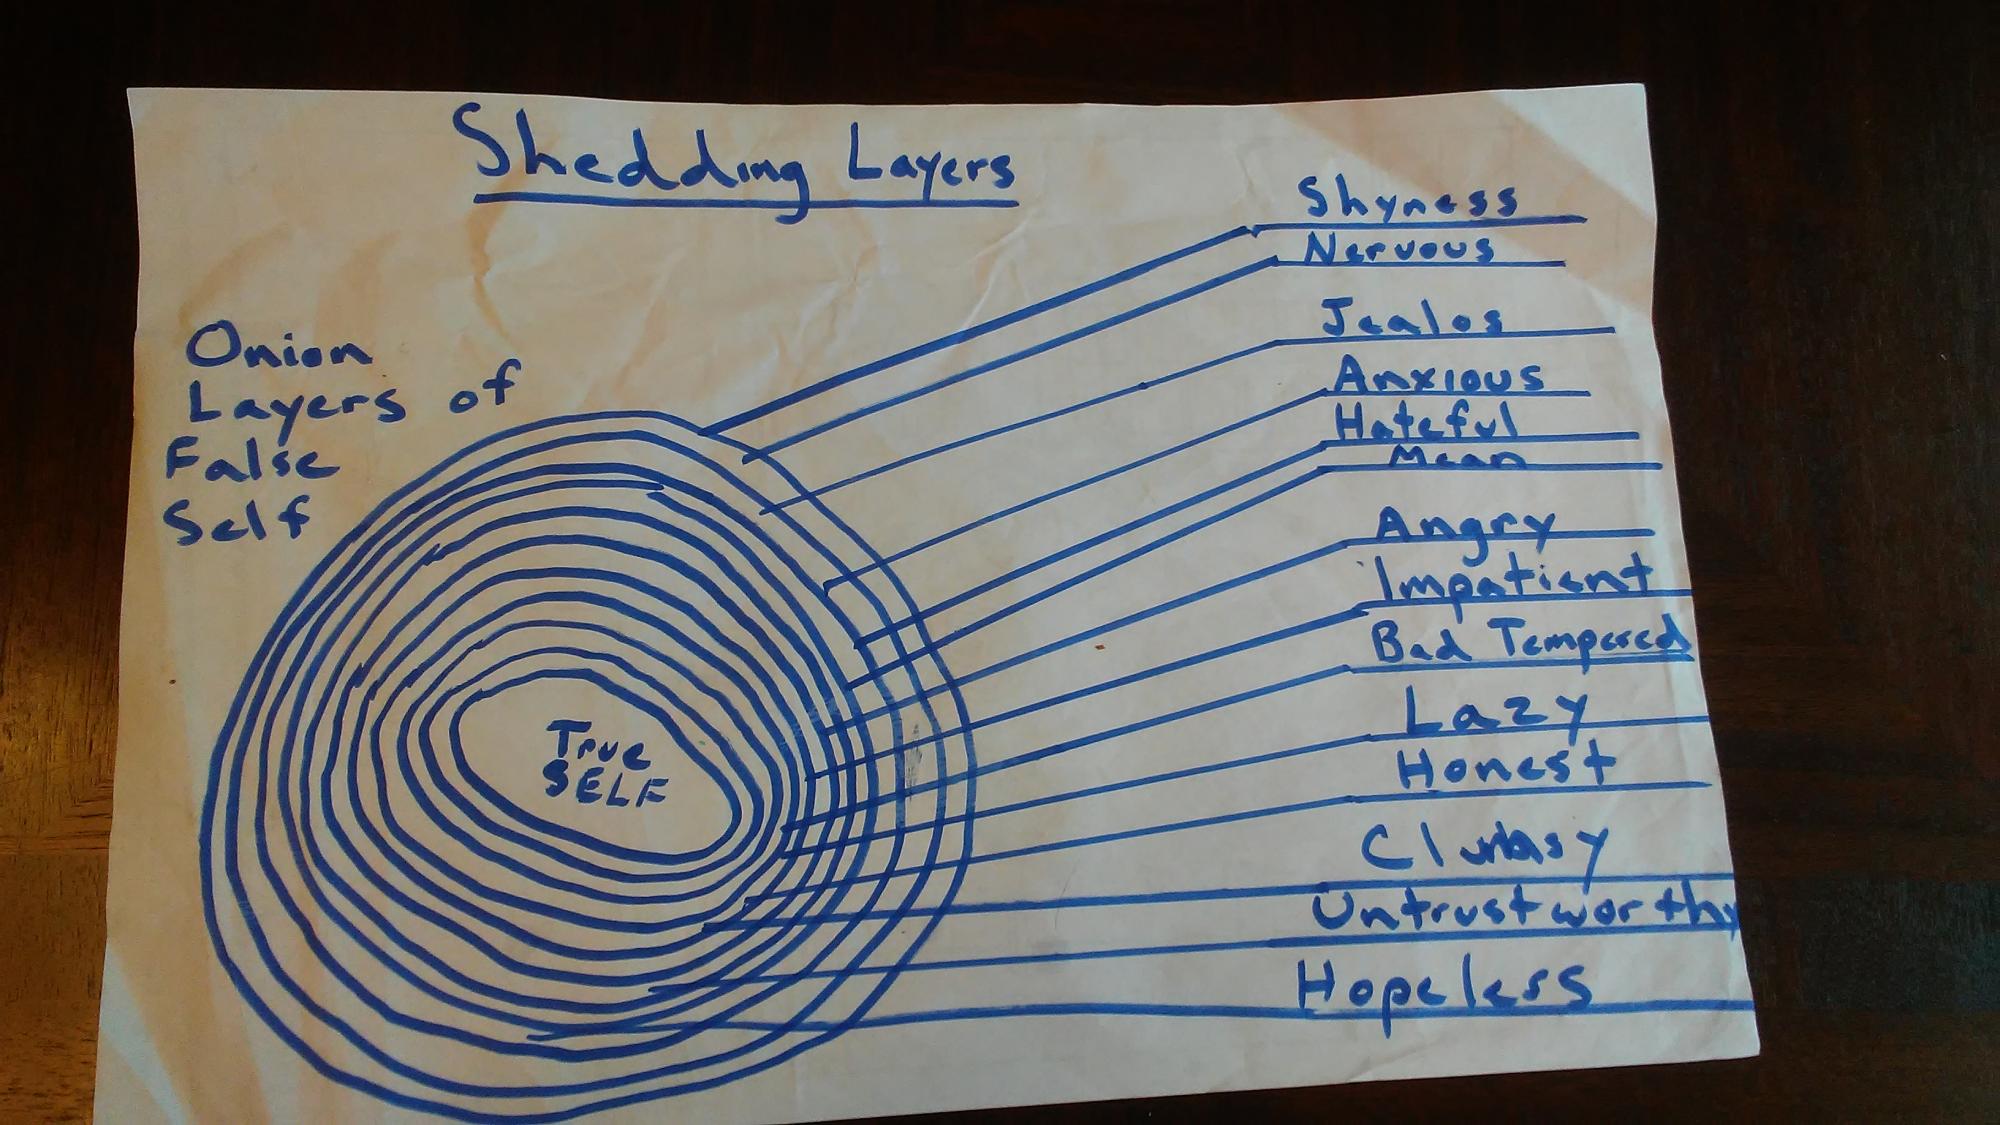 Shedding Layers
Onion
Layers of
False
Self
True
SELF
Shyness
Nervous
Jealos
Anxious
Hateful
Mean
Angry
Impatient
Bad Tempered
Lazy
Honest
Clumbsy
Untrustworthy
Hopeless